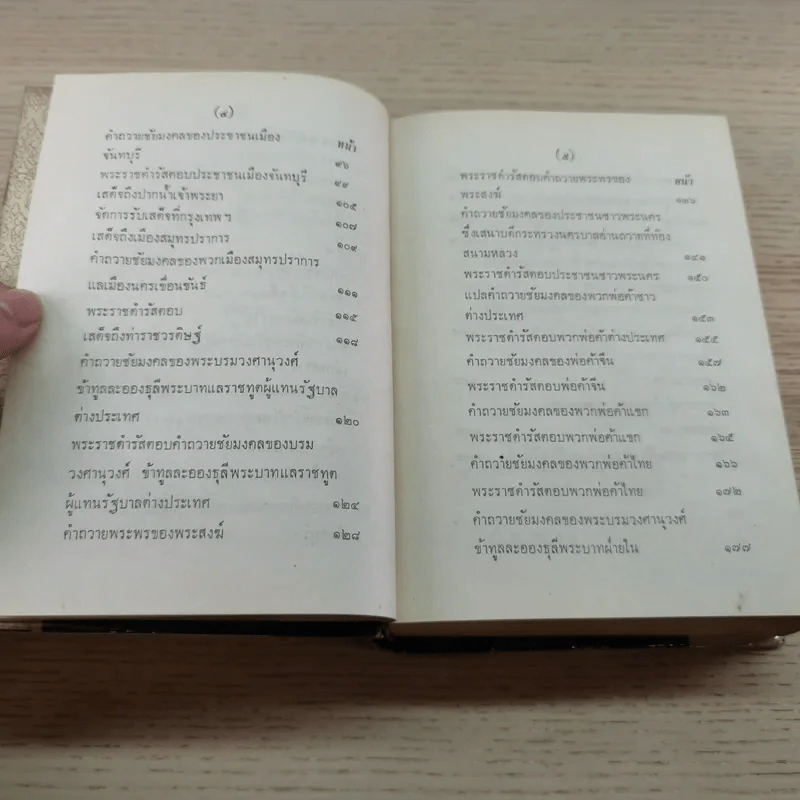 (๔)
หน้า
คำถวายชัยมงคลของประชาชนเมือง
จันทบุรี ๙๖
พระราชดำรัสตอบประชาชนเมืองจันทบุรี ๙๙
เสด็จถึงปากน้ำเจ้าพระยา ๑๐๕
จัดการรับเสด็จที่กรุงเทพฯ ๑๐๗
เสด็จถึงเมืองสมุทรปราการ ๑๐๙
คำถวายชัยมงคลของพวกเมืองสมุทรปราการ
แลเมืองนครเขื่อนขันธ์ ๑๑๑
พระราชดำรัสตอบ ๑๑๕
เสด็จถึงท่าราชวรดิษฐ์ ๑๑๘
คำถวายชัยมงคลของพระบรมวงศานุวงศ์
ข้าทูลละอองธุลีพระบาทแลราชทูตผู้แทนรัฐบาล
ต่างประเทศ ๑๒๐
พระราชดำรัสตอบคำถวายชัยมงคลของบรม
วงศานุวงศ์ ข้าทูลละอองธุลีพระบาทแลราชทูต
ผู้แทนรัฐบาลต่างประเทศ ๑๒๔
คำถวายพระพรของพระสงฆ์ ๑๒๘
(๕)
หน้า
พระราชดำรัสตอบคำถวายพระพรของ
พระสงฆ์ ๑๓๖
คำถวายชัยมงคลของประชาชนชาวพระนคร
ซึ่งเสนาบดีกระทรวงนครบาลอ่านถวายที่ท้อง
สนามหลวง ๑๔๑
พระราชดำรัสตอบประชาชนชาวพระนคร ๑๕๐
แปลคำถวายชัยมงคลของพวกพ่อค้าชาว
ต่างประเทศ ๑๕๓
พระราชดำรัสตอบพวกพ่อค้าต่างประเทศ ๑๕๕
คำถวายชัยมงคลของพ่อค้าจีน ๑๕๗
พระราชดำรัสตอบพ่อค้าจีน ๑๖๒
คำถวายชัยมงคลของพวกพ่อค้าแขก ๑๖๓
พระราชดำรัสตอบพวกพ่อค้าแขก ๑๖๕
คำถวายชัยมงคลของพวกพ่อค้าไทย ๑๖๖
พระราชดำรัสตอบพวกพ่อค้าไทย ๑๗๒
คำถวายชัยมงคลของพระบรมวงศานุวงศ์
ข้าทูลละอองธุลีพระบาทฝ่ายใน ๑๗๗